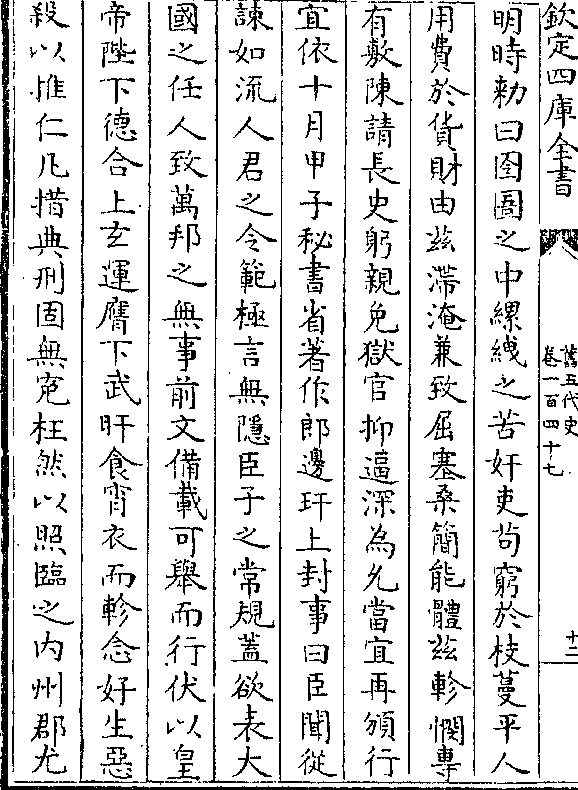 欽定四庫全書
舊五代史
卷一百四十七
十二
明時勅曰囹圄之中縲絏之苦奸吏茍窮於枝蔓平人
用費於貨財由兹滯淹兼致屈塞桑簡能體兹軫憫專
有敷陳請長史躬親免獄官抑逼深為允當宜再頒行
宜依十月甲子秘書省著作郎邊玕上封事曰臣聞從
諫如流人君之令範極言無隱臣子之常規蓋欲表大
國之任人致萬邦之無事前文備載可舉而行伏以皇
帝陛下德合上玄運膺下武旰食宵衣而軫念好生惡
殺以推仁凡措典刑固無寃枉然以照臨之内州郡尤